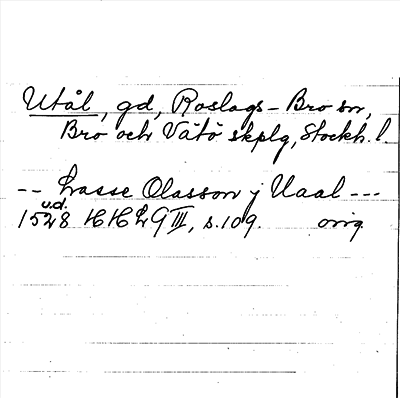 Utål, gd, Roslags-Bro sn,
Bro och Vätö skplg, Stockh. l.
-- Lasse Olasson j Uaal ---
u.d.
1528 HH Lg III, s. 109. orig.